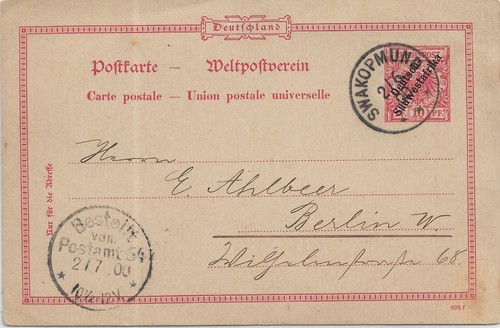 Deutschland
Postkarte – Weltpostverein
Carte postale – Union postale universelle
SWAKOPMUND
REICHSPOST
Deutsch-
Südwestafrika
10 PF
Nur für die Adresse
Herrn
E. Ahlbeer
Berlin W.
Wilhelmstraße 68.
Bestellt
vom
Postamt 54
2/7.00
898 f